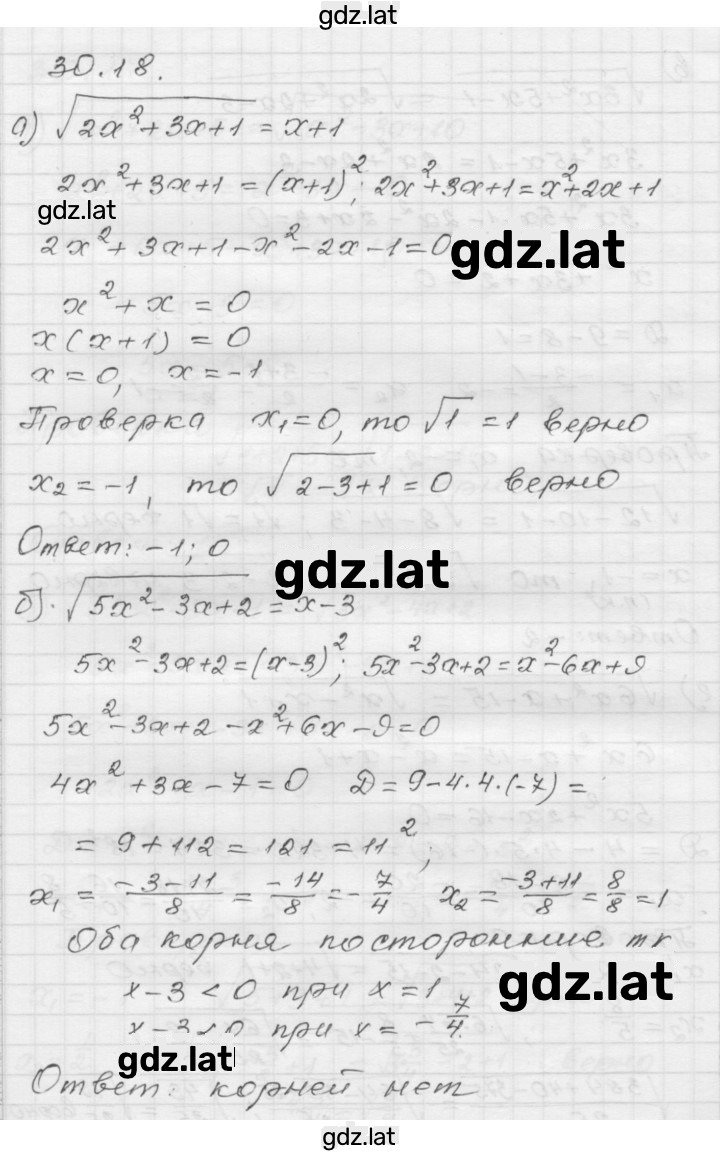 gdz.lat
30.18.
а) √2x²+3x+1 = x+1
2x²+3x+1 = (x+1)²; 2x²+3x+1 = x²+2x+1
gdz.lat
2x²+3x+1-x²-2x-1=0
gdz.lat
x²+x = 0
x(x+1) = 0
x=0, x=-1
Проверка x₁=0, то √1 =1 верно
x₂=-1, то √2-3+1 = 0 верно
Ответ: -1; 0
gdz.lat
б). √5x²-3x+2 = x-3
5x²-3x+2=(x-3)²; 5x²-3x+2=x²-6x+9
5x²-3x+2-x²+6x-9=0
4x²+3x-7=0 D=9-4·4·(-7)=
=9+112=121=11²;
x₁ = (-3-11)/8 = -14/8 = -7/4 x₂ = (-3+11)/8 = 8/8 = 1
Оба корня посторонние тк
x-3<0 при x=1
gdz.lat
x-3<0 при x=-7/4.
gdz.lat
Ответ: корней нет
gdz.lat